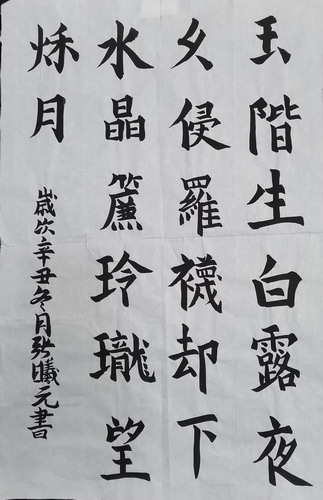 玉階生白露夜
久侵羅襪却下
水晶簾玲瓏望
秋月
歲次辛丑冬月张曦元書